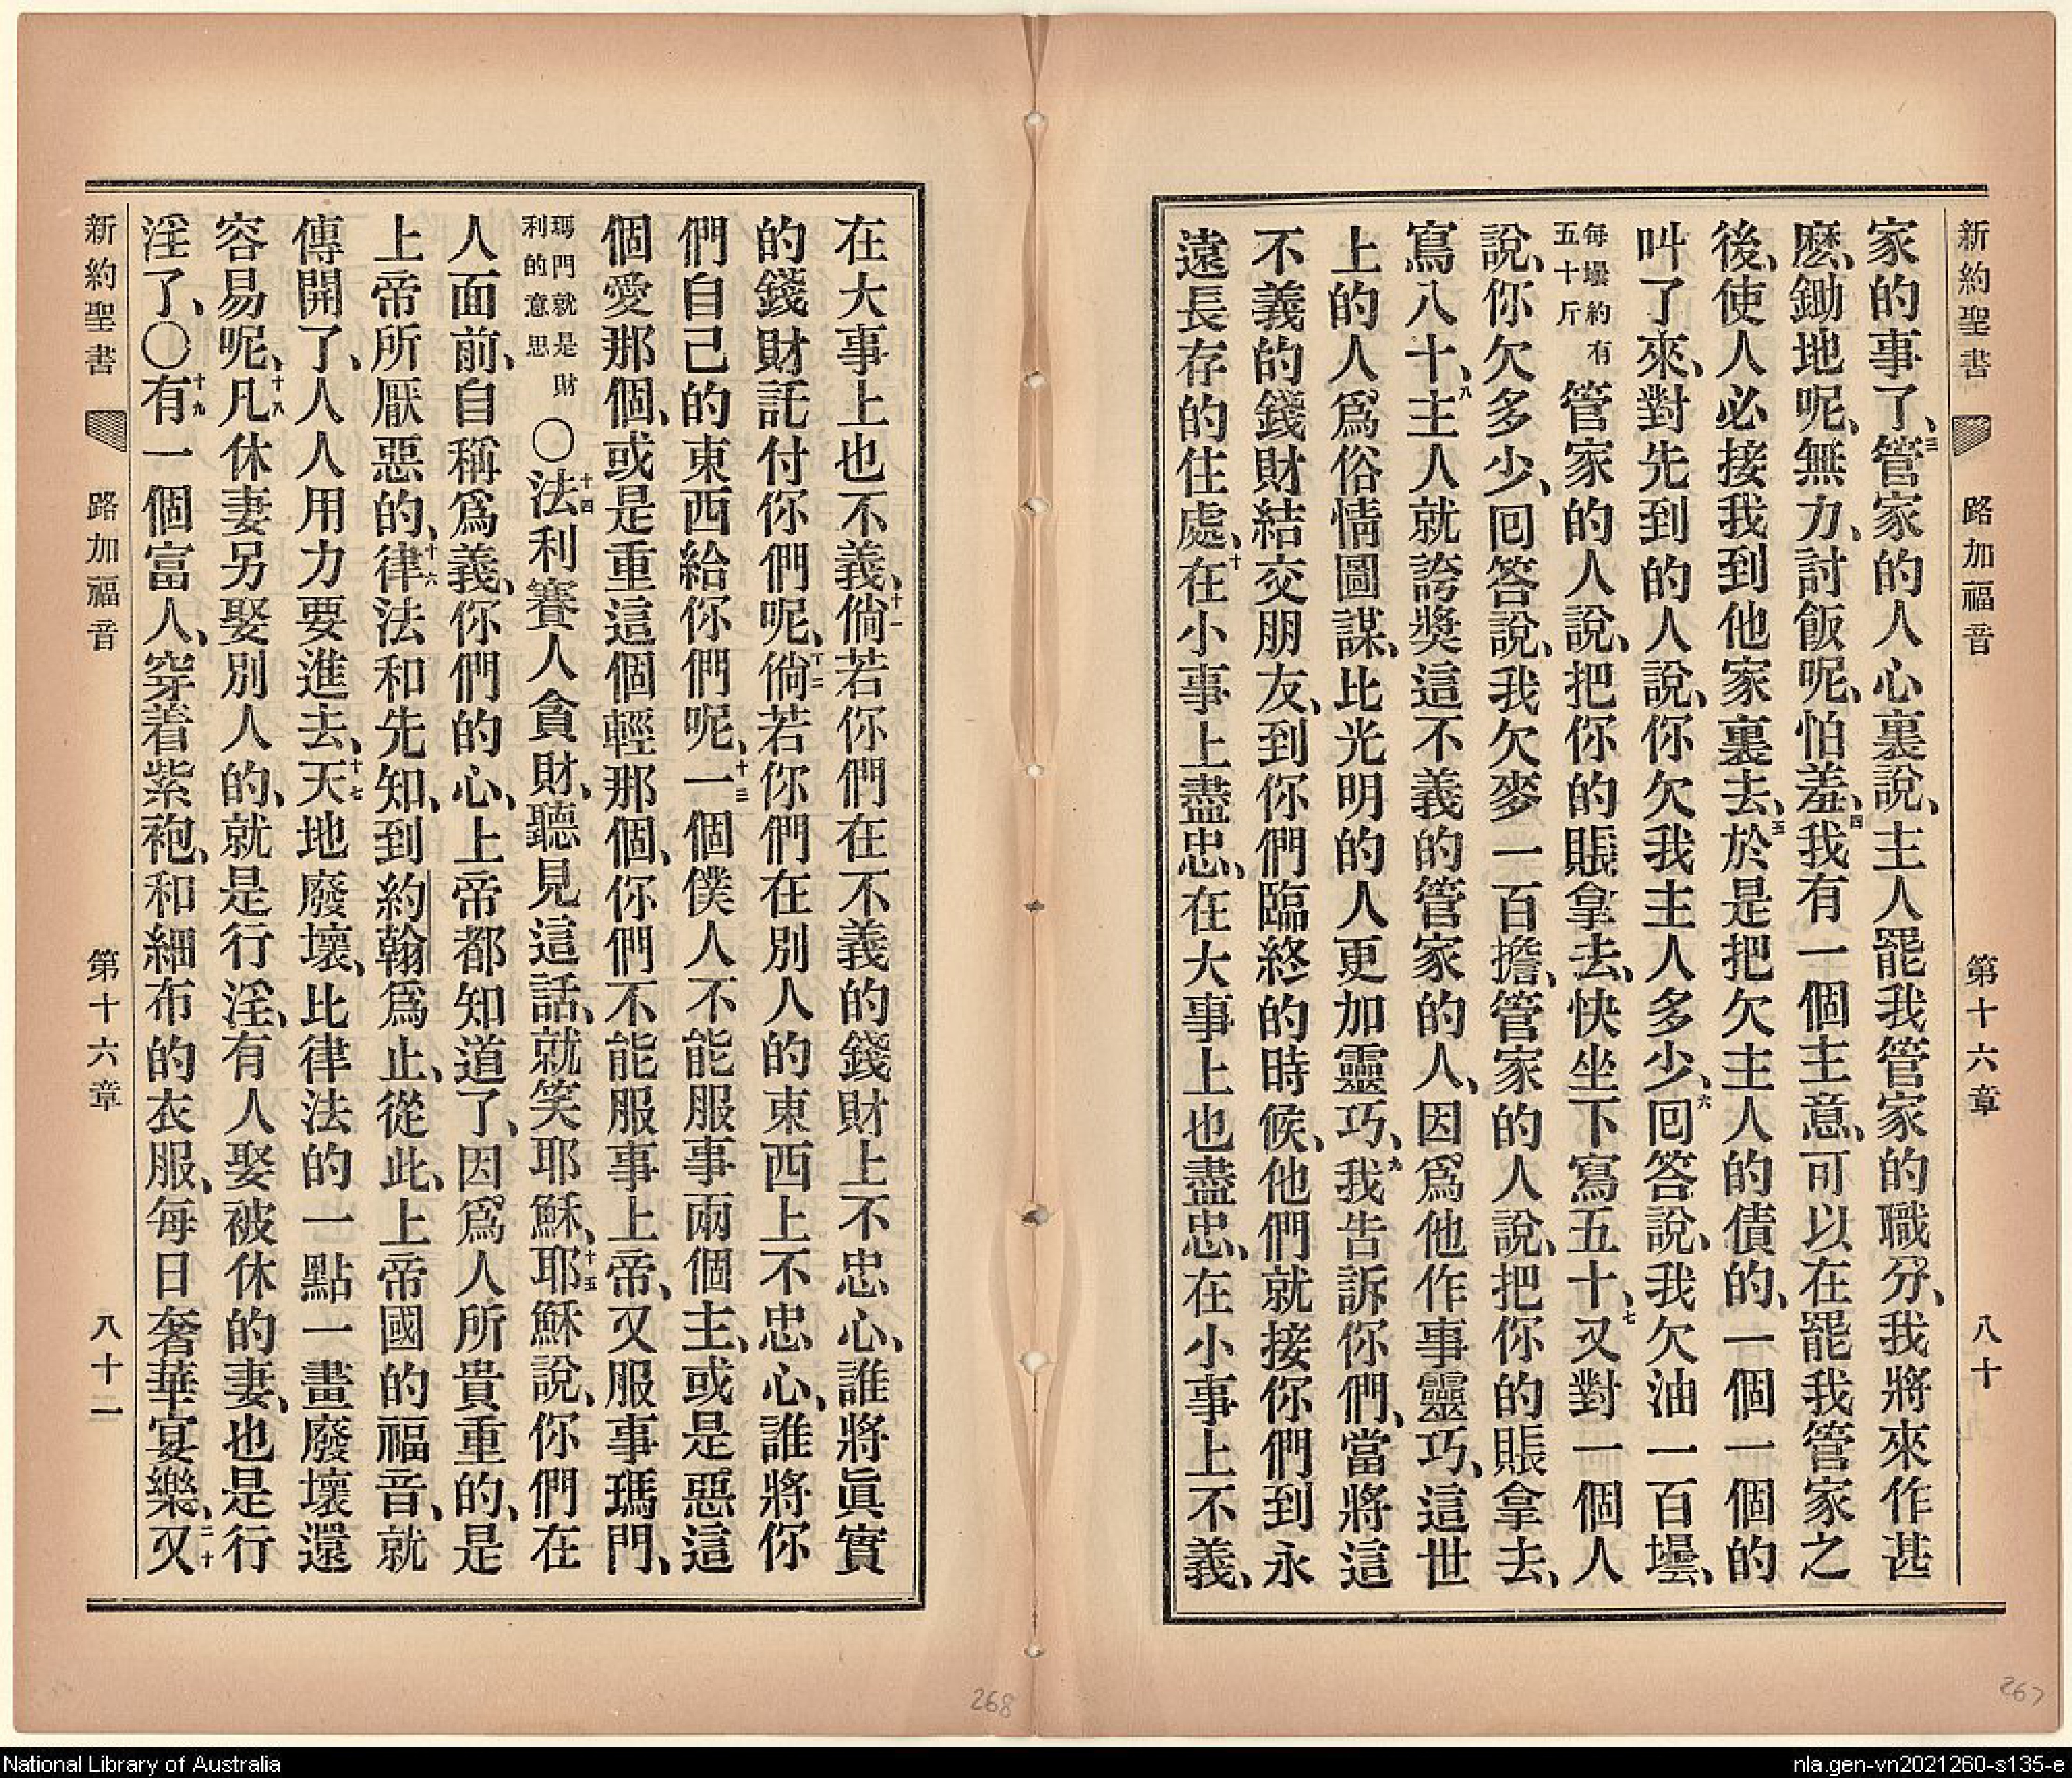 新約聖書 路加福音 第十六章 八十
家的事了、三管家的人心裏說、主人罷我管家的職分、我將來作甚
麽、鋤地呢、無力、討飯呢、怕羞、四我有一個主意、可以在罷我管家之
後、使人必接我到他家裏去、五於是把欠主人的債的、一個一個的
叫了來、對先到的人說、你欠我主人多少、六囘答說、我欠油一百壜、
每壜約有五十斤管家的人說、把你的賬拿去、快坐下寫五十、七又對一個人
說、你欠多少、囘答說、我欠麥一百擔、管家的人說、把你的賬拿去、
寫八十、八主人就誇獎這不義的管家的人、因爲他作事靈巧、這世
上的人、爲俗情圖謀、比光明的人更加靈巧、九我告訴你們、當將這
不義的錢財結交朋友、到你們臨終的時候、他們就接你們到永
遠長存的住處、十在小事上盡忠、在大事上也盡忠、在小事上不義、
在大事上也不義、十一倘若你們在不義的錢財上不忠心、誰將眞實
的錢財託付你們呢、十二倘若你們在別人的東西上不忠心、誰將你
們自己的東西給你們呢、十三一個僕人不能服事兩個主、或是惡這
個愛那個、或是重這個輕那個、你們不能服事上帝、又服事瑪門、
瑪門就是財利的意思〇十四法利賽人貪財、聽見這話、就笑耶穌、十五耶穌說、你們在
人面前、自稱爲義、你們的心、上帝都知道了、因爲人所貴重的、是
上帝所厭惡的、十六律法和先知、到約翰爲止、從此、上帝國的福音、就
傳開了、人人用力要進去、十七天地廢壞、比律法的一點一畫廢壞還
容易呢、十八凡休妻另娶別人的、就是行淫、有人娶被休的妻、也是行
淫了、〇十九有一個富人、穿着紫袍、和細布的衣服、每日奢華宴樂、二十又
新約聖書 路加福音 第十六章 八十一
268
267
National Library of Australia
nla.gen-vn2021260-s135-e